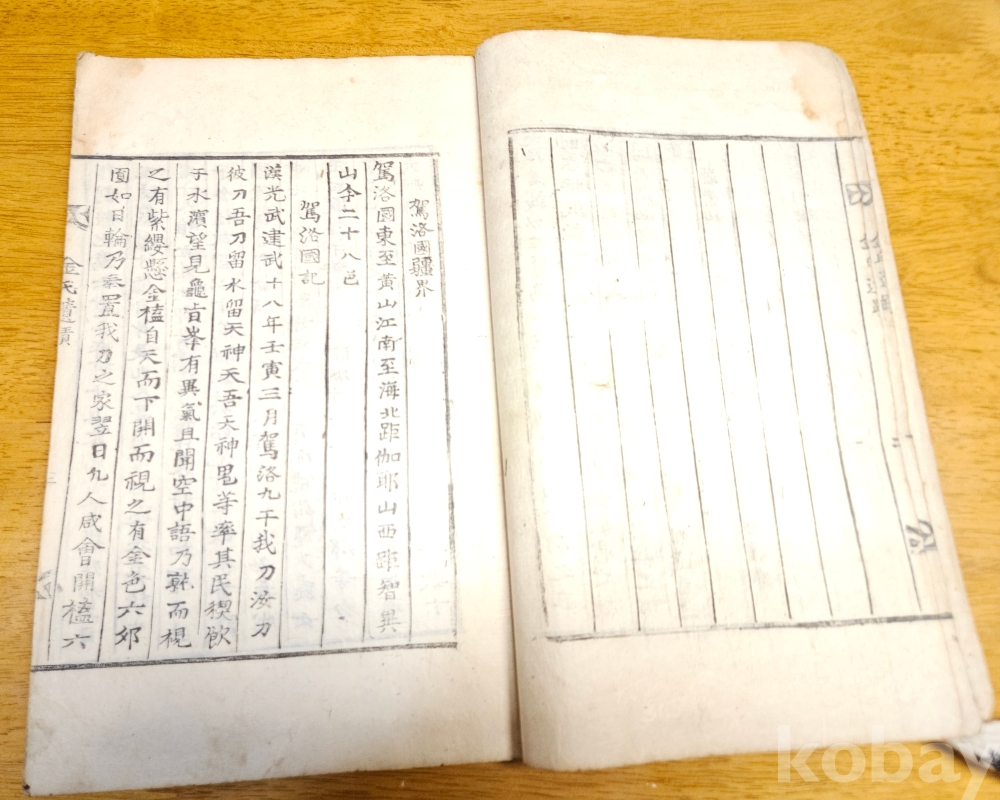 駕洛國疆界
駕洛國東至黃山江南至海北距伽耶山西距智異
山李二十八邑
駕洛國記
漢光武建武十八年壬寅三月駕洛九干我刀汝刀
彼刀吾刀留水留天神天吾天神鬼等率其民禊飮
于水濱望見龜旨峯有異氣且聞空中語乃就而視
之有紫纓懸金榼自天而下開而視之有金色六卵
圎如日輪乃奉置我刀之家翌日九人咸會開榼六
金氏
kobay